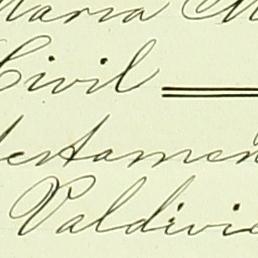 Maria M
Civil
testamen
Valdivie